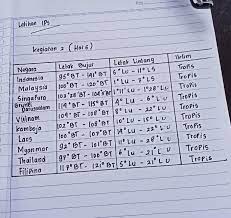 Latihan IPS
Kegiatan 2 (Hal 6)
Negara Letak Bujur Letak Lintang Iklim
Indonesia 95° BT - 141° BT 6° LU - 11° LS Tropis
Malaysia 100° BT - 120° BT 1° LU - 7° LS Tropis
Singapura Tropis
Brunei Darussalam 114° BT - 115° BT 4° LU - 6° LU Tropis
Vietnam 109° BT - 8° LU - 22° LU Tropis
Kamboja 102° BT - 108° BT 10° LU - 15° LU Tropis
Laos 100° BT - 107° BT 14° LU - 22° LU Tropis
Myanmar 92° BT - 101° BT 11° LU - 28° LU Tropis
Thailand 97° BT - 6° LU - 21° LU Tropis
Filipina 117° BT - 5° LU - 21° LU Tropis